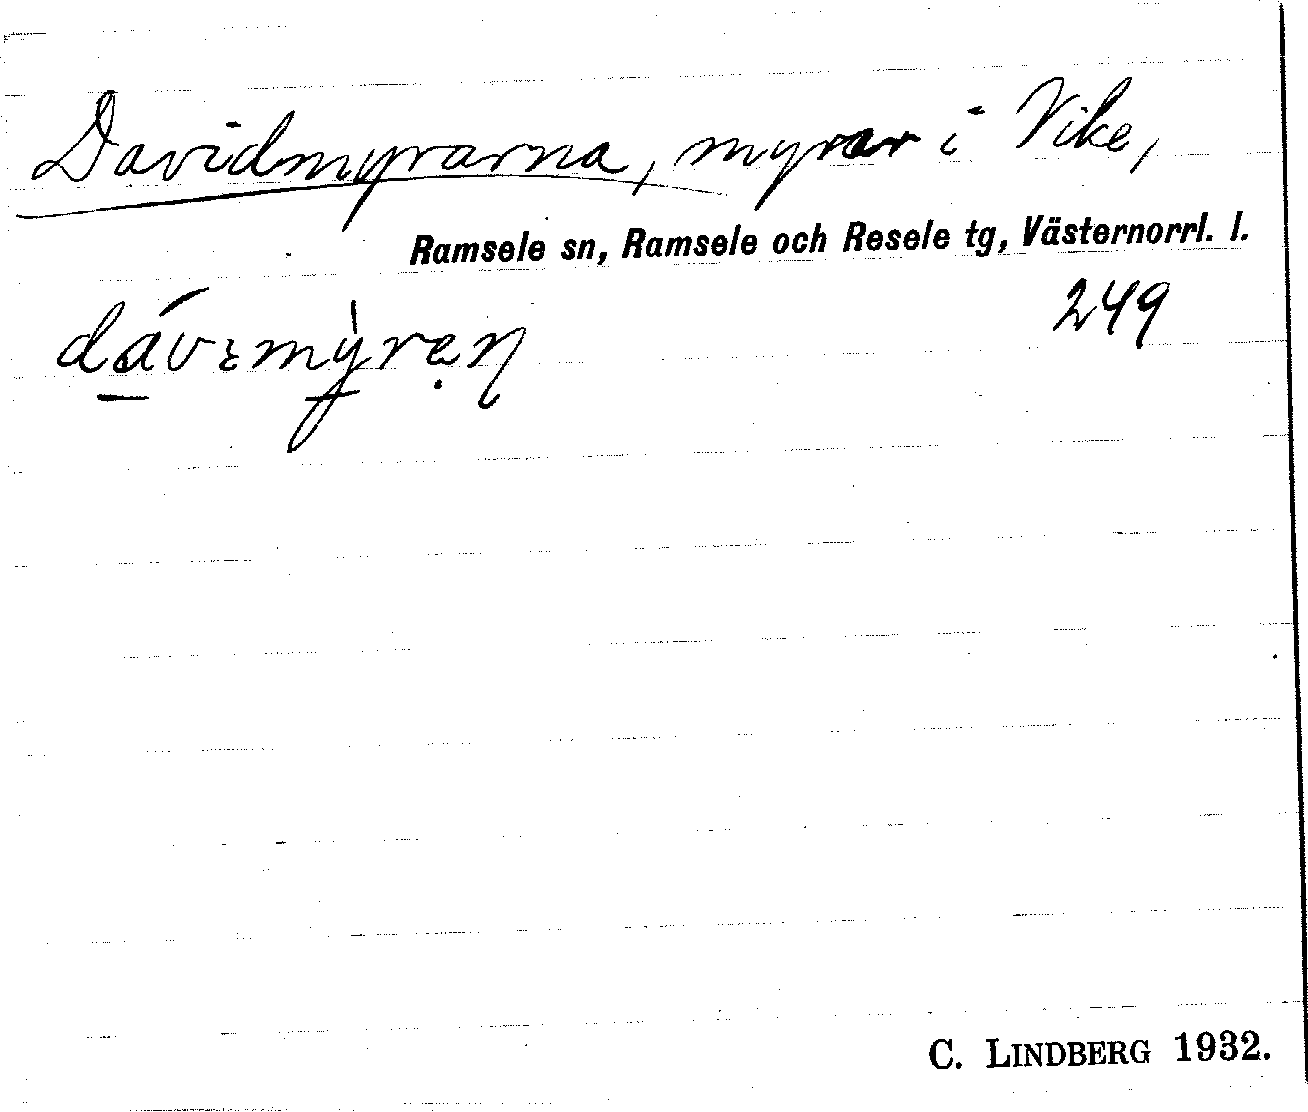 Davidmyrarna, myrar i Vike,
Ramsele sn, Ramsele och Resele tg, Västernorrl. l.
249
C. LINDBERG 1932.